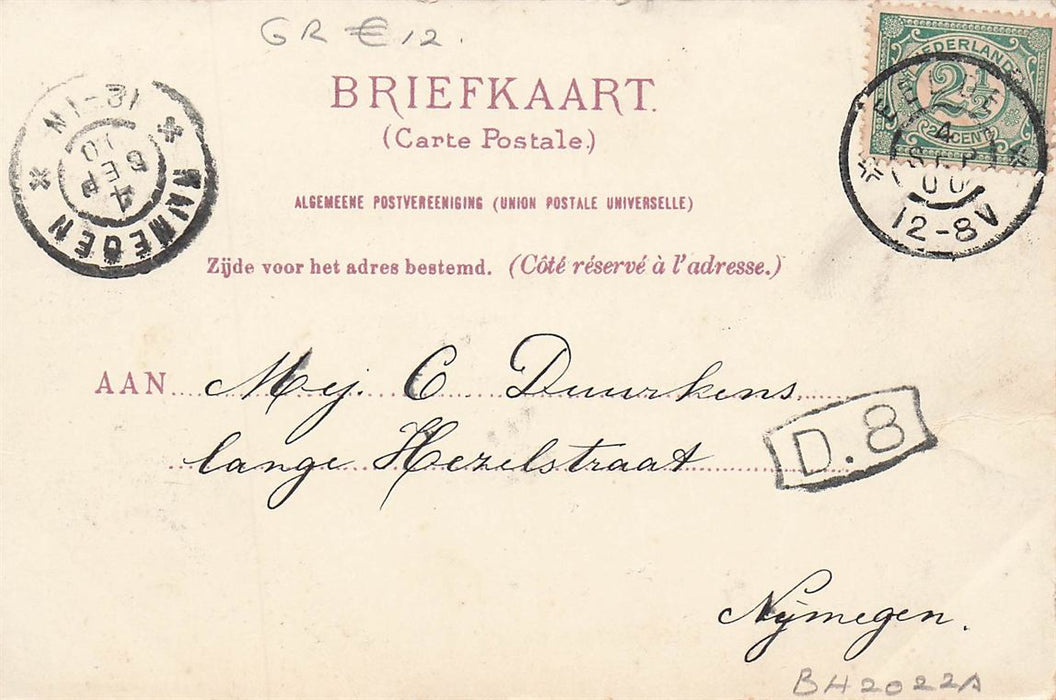 GR € 12.
NEDERLAND
2½
2½ CENT
4
SEP
00
12-8V
12-1N
4
SEP
00
NIJMEGEN
BRIEFKAART.
(Carte Postale.)
ALGEMEENE POSTVEREENIGING (UNION POSTALE UNIVERSELLE)
Zijde voor het adres bestemd. (Côté réservé à l'adresse.)
AAN Mej. C. Duurkens
lange Hezelstraat
D.8
Nijmegen.
BH2022A